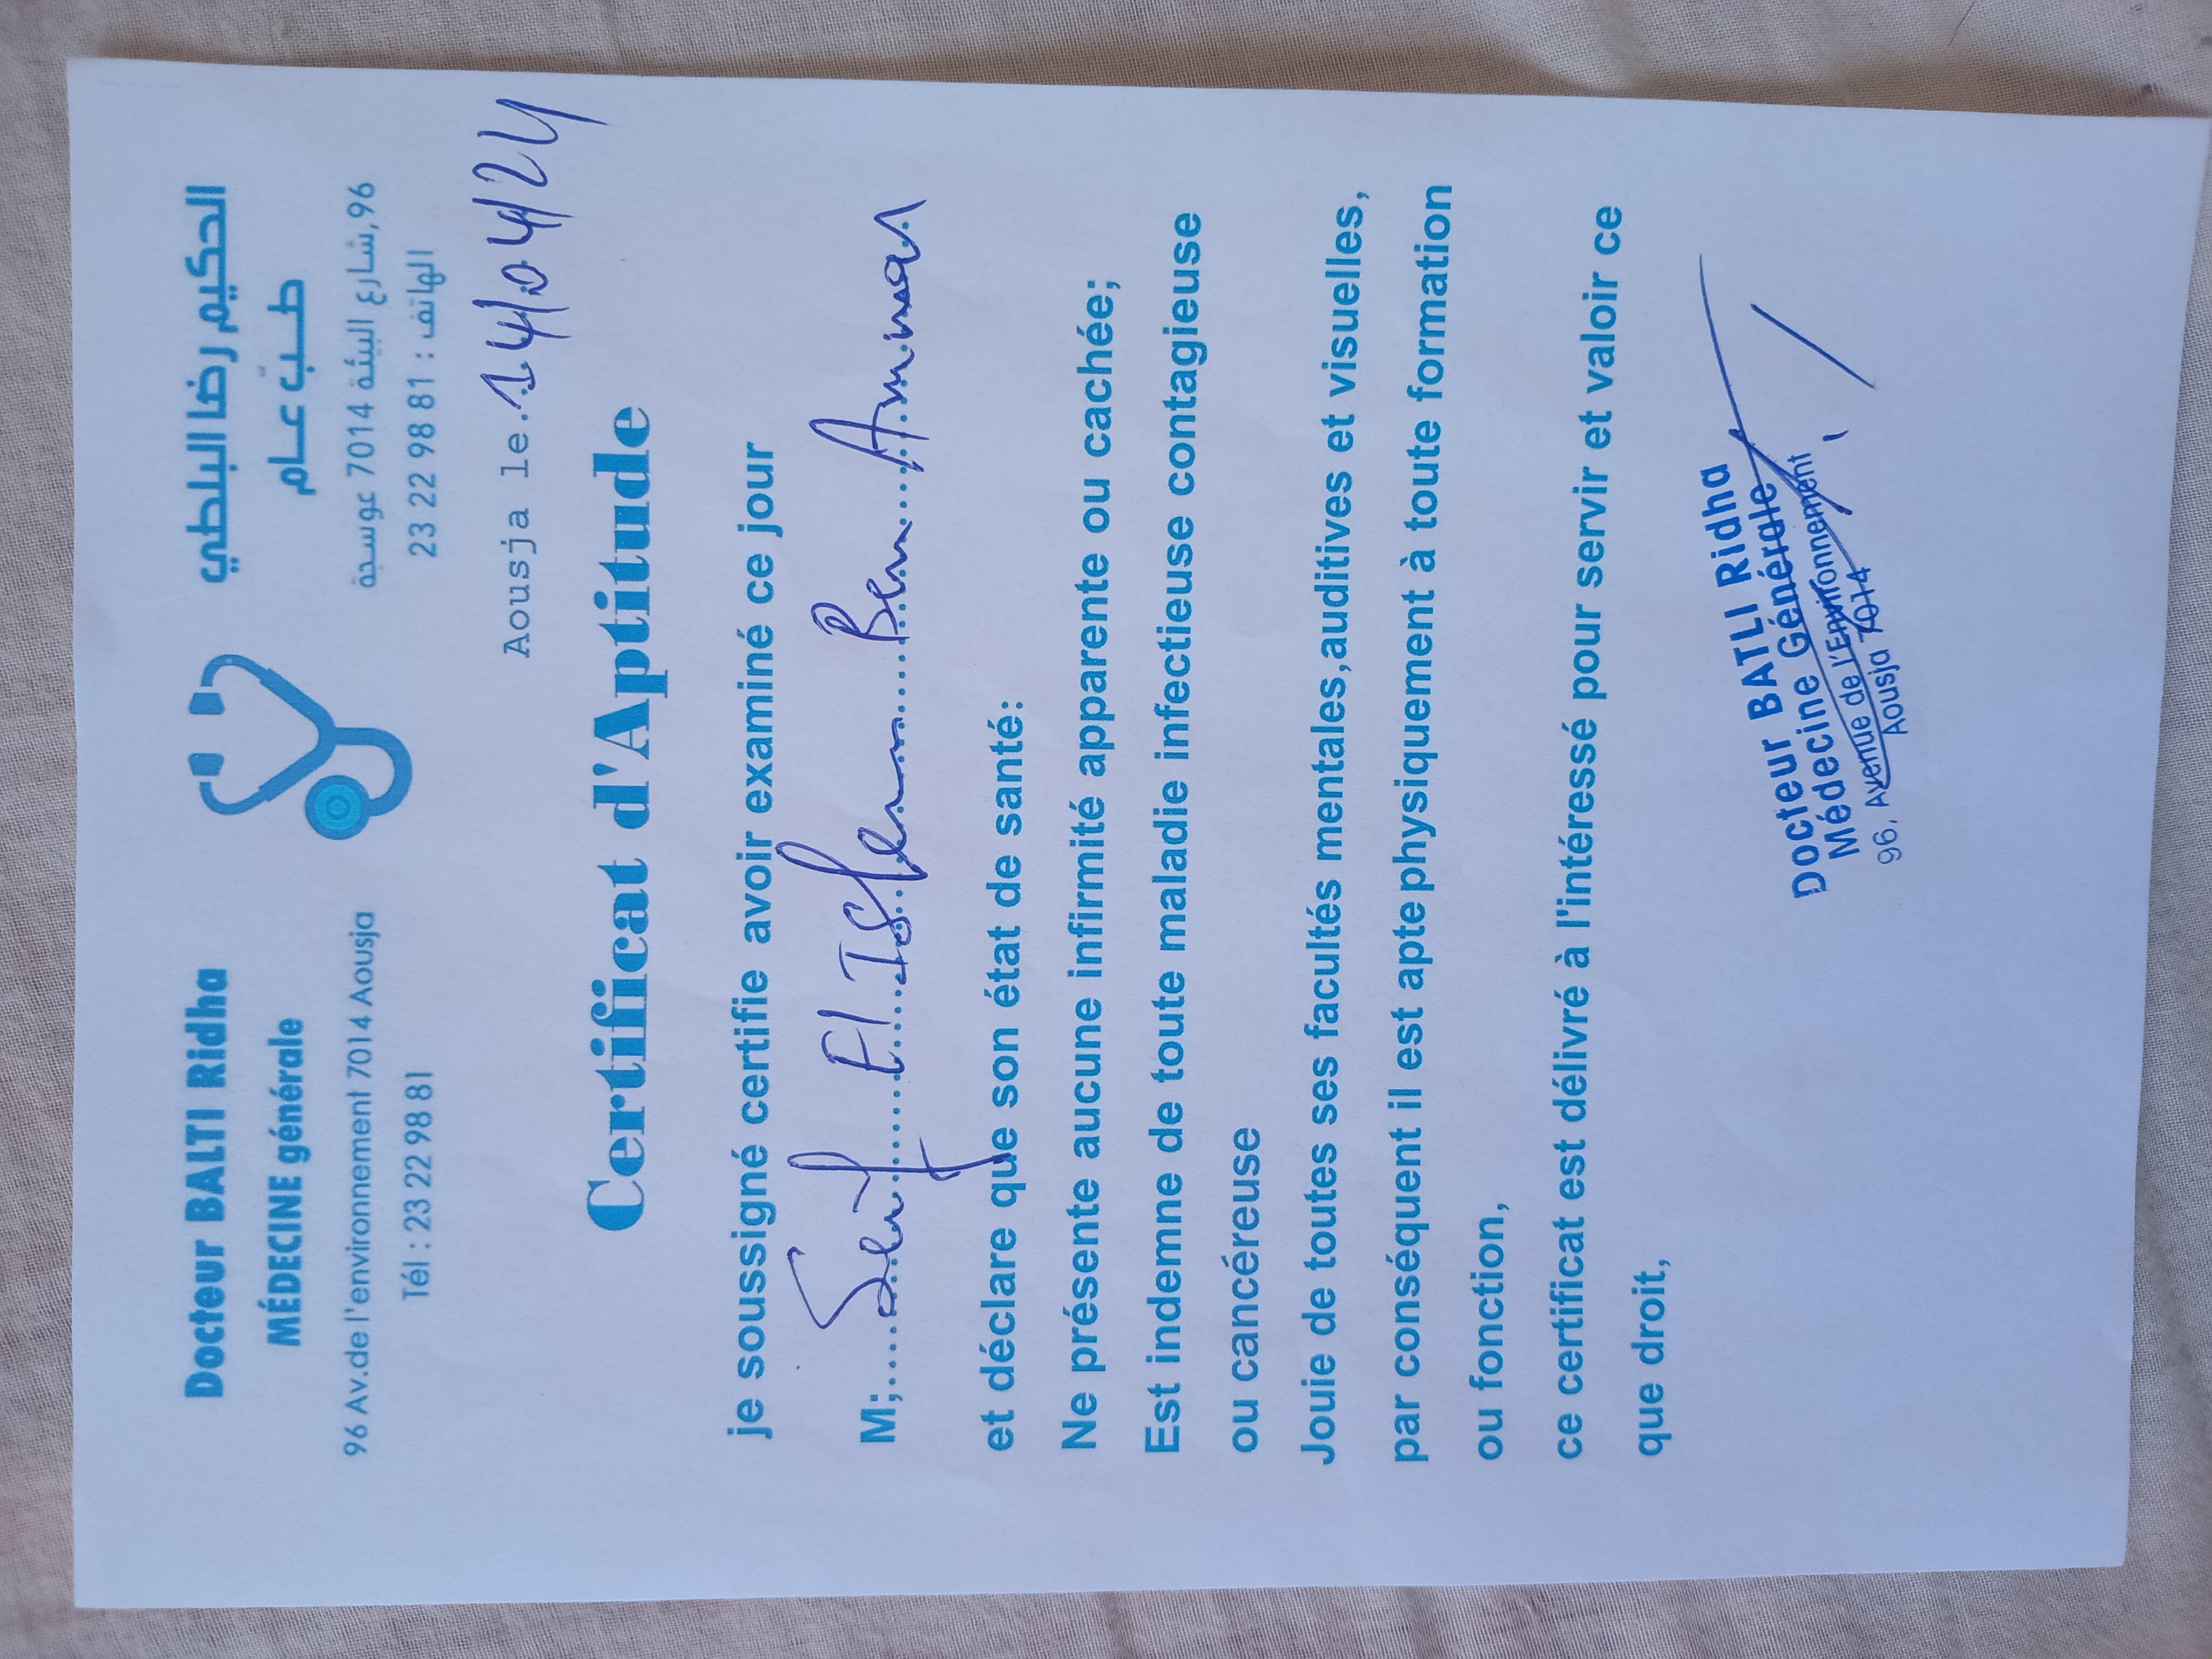 Docteur BALTI Ridha
MÉDECINE générale
96 Av.de l'environnement 7014 Aousja
Tél : 23 22 98 81
الحكيم رضا البلطي
طب عام
96,شارع البيئة 7014 عوسجة
الهاتف : 23 22 98 81
Aousja le 14/04/24
Certificat d'Aptitude
je soussigné certifie avoir examiné ce jour
M;.....Seif El Islem Ben Ammar
et déclare que son état de santé:
Ne présente aucune infirmité apparente ou cachée;
Est indemne de toute maladie infectieuse contagieuse
ou cancéreuse
Jouie de toutes ses facultés mentales,auditives et visuelles,
par conséquent il est apte physiquement à toute formation
ou fonction,
ce certificat est délivré à l'intéressé pour servir et valoir ce
que droit,
Docteur BATLI Ridha
Médecine Générale
96, Avenue de l'Environnement
Aousja 7014